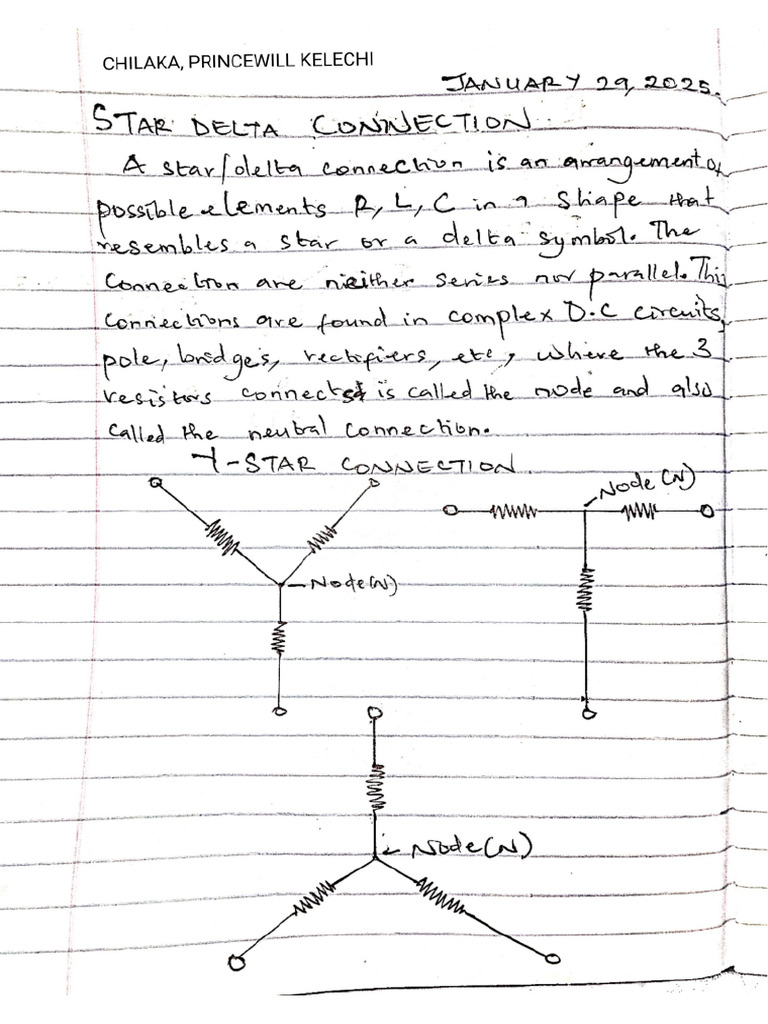 CHILAKA, PRINCEWILL KELECHI
JANUARY 29, 2025.
STAR DELTA CONNECTION
A star/delta connection is an arrangement of
possible elements R, L, C in a shape that
resembles a star or a delta symbol. The
connection are neither series nor parallel. This
connections are found in complex D.C circuits,
pole, bridges, rectifiers, etc, where the 3
resistors connects is called the node and also
called the neutral connection.
Y-STAR CONNECTION
Node (N)
Node(N)
Node(N)